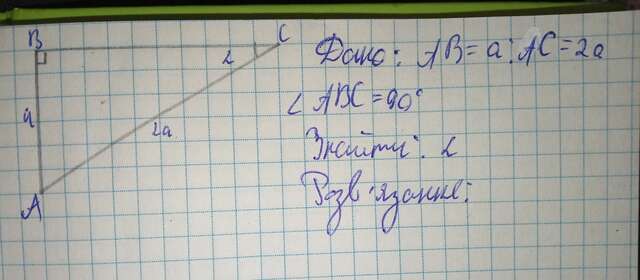 B
C
α
a
2a
A
Дано: AB = a; AC = 2a
∠ABC = 90°
Знайти: α
Розв'язання: